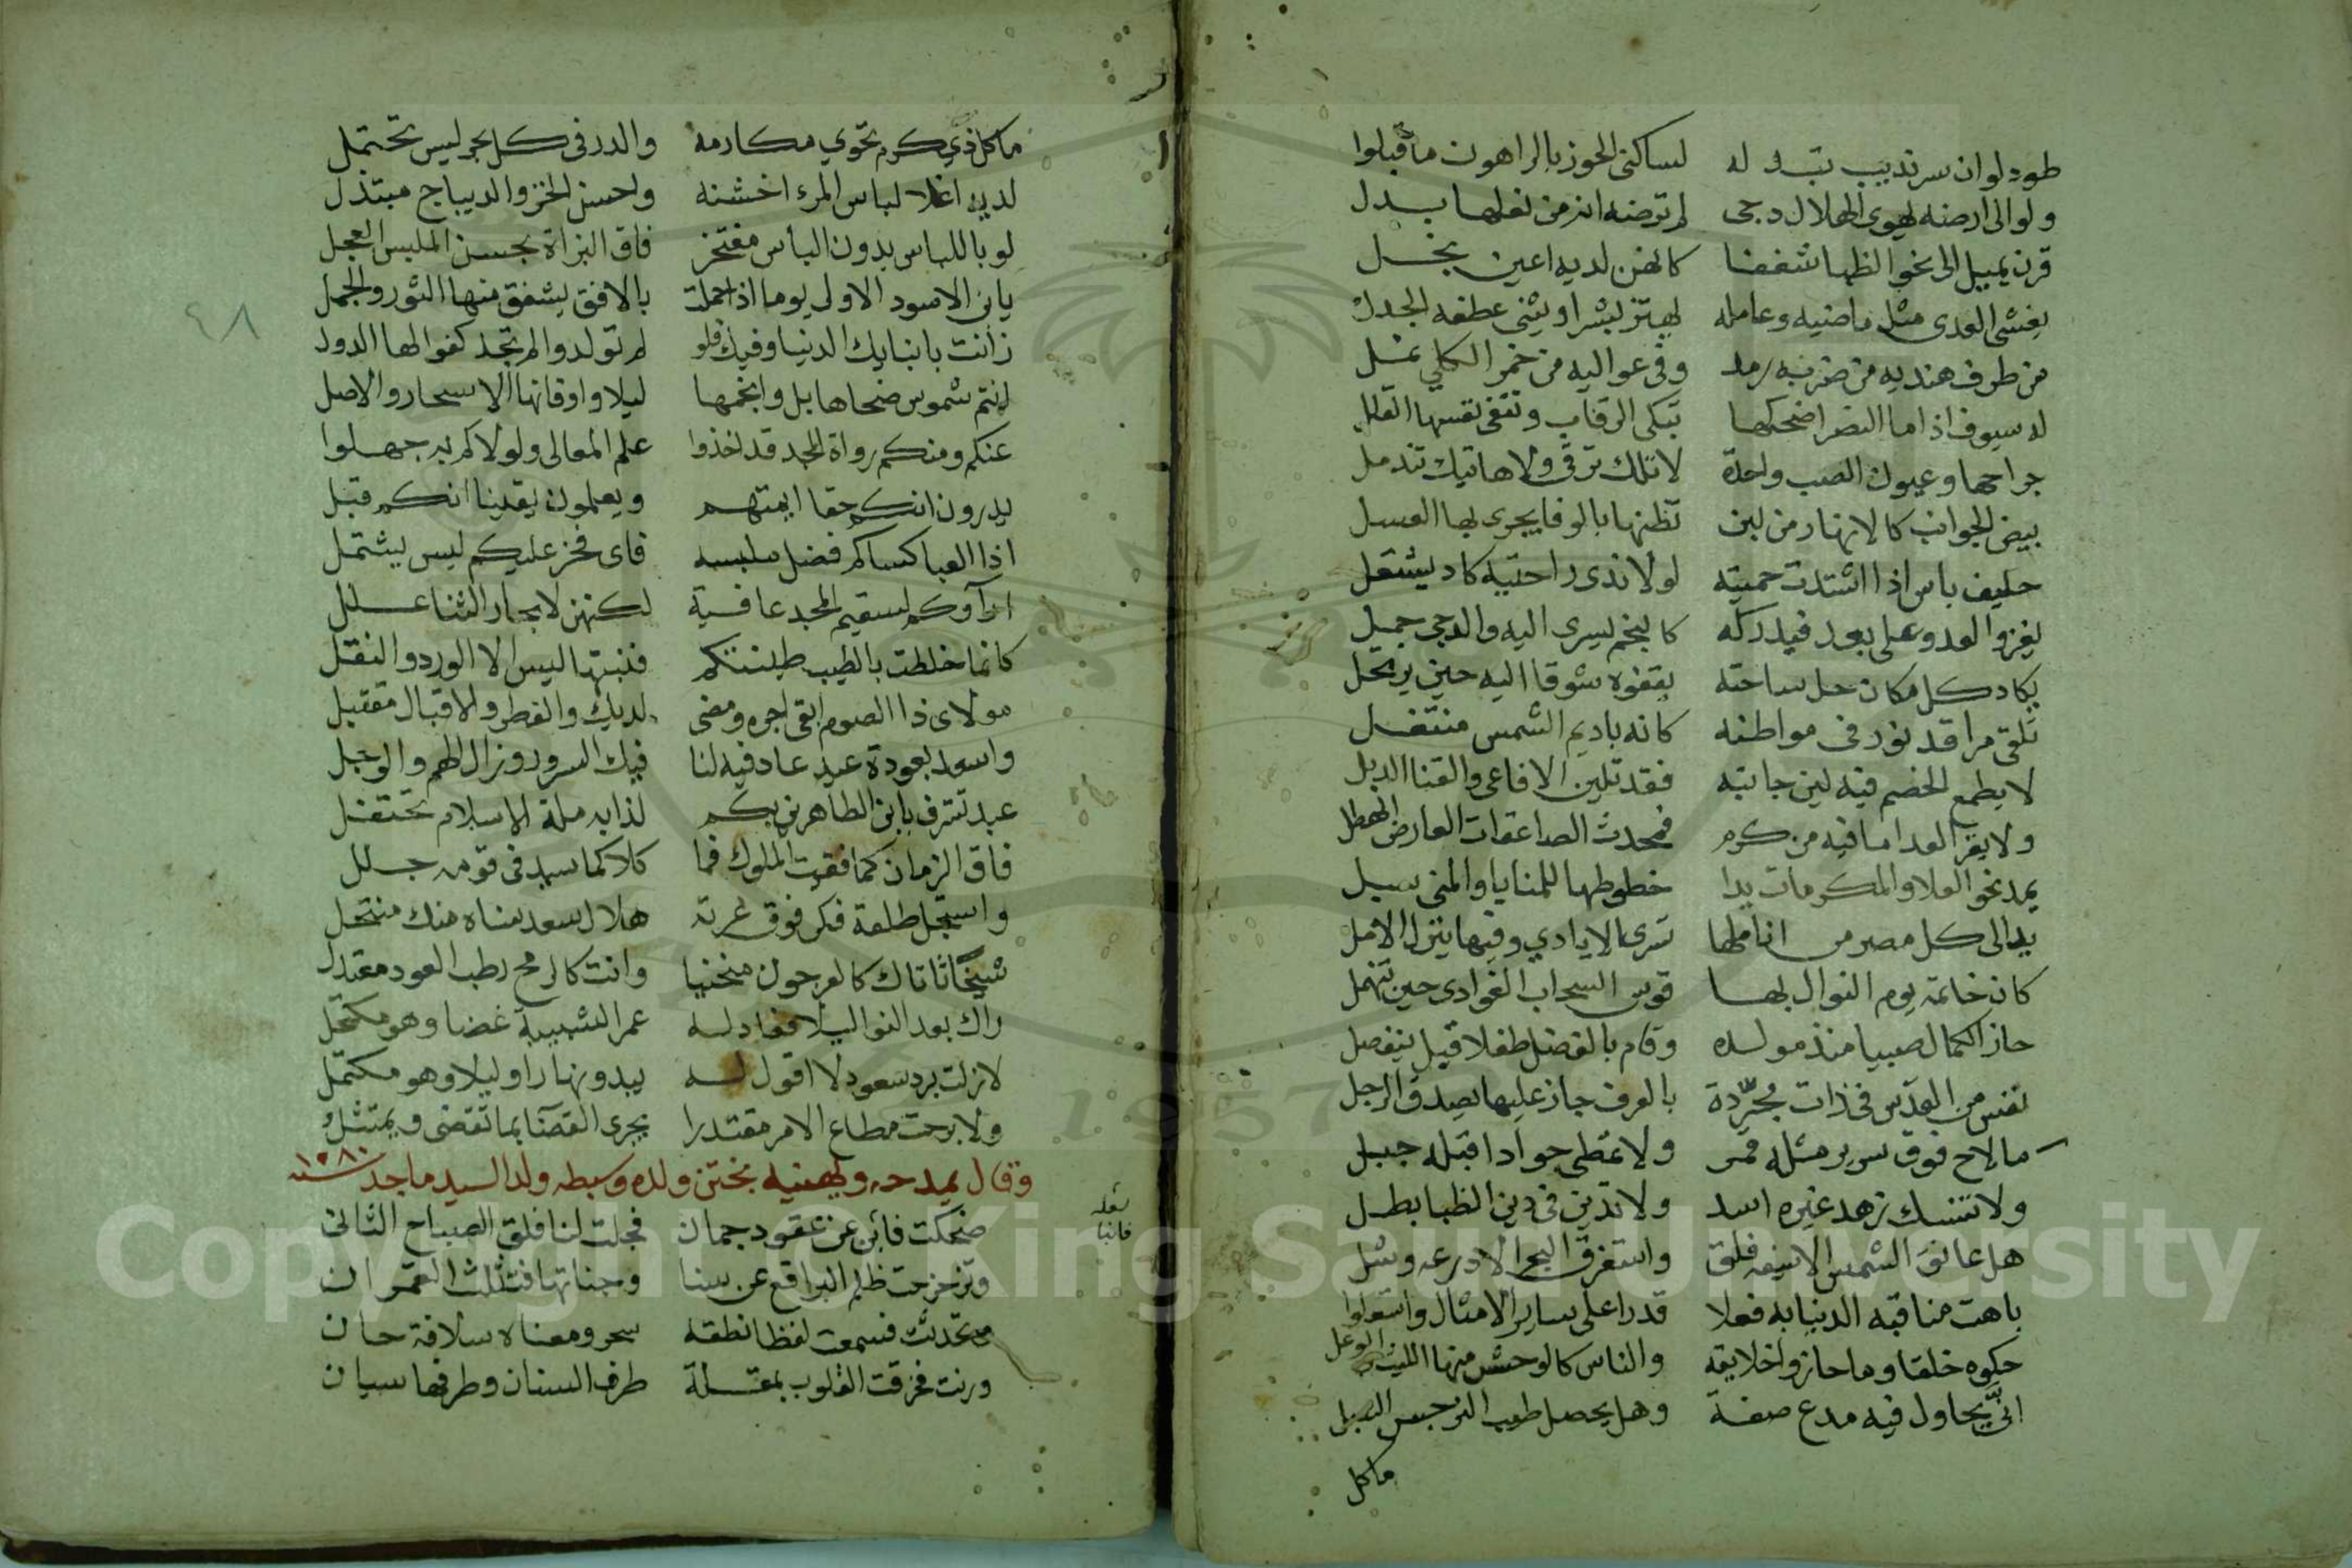 طود لو ان سرنديب تبدله له لساكنى الحوز بالراهون ما قبلوا
ولو الى ارضه يهوى الهلال دجى لم ترضه انه من نعلها بدل
قرن يميل الى نحو الظبا شغفا كانهن لديه اعين نجل
يغشى العدى مثل ماضيه وعامله يهتز بشرا ويثنى عطفه الجدل
من طرف هنديه من ضربه رمد وفى عواليه من خمر الكلي ثمل
له سيوف اذا ما النصر اضحكها تبكى الرقاب وتنعى نفسها القلل
جراحها وعيون الصب واحدة لا تلك ترقى ولا هاتيك تندمل
بيض الجوانب كالانهار من لبن تظنها بالوفا يجرى بها العسل
حليف باس اذا اشتدت حميته لولا ندى راحتيه كاد يشتعل
يغزو العدو على بعد فيدركه كالنجم يسرى اليه والدجى جمل
يكاد كل مكان حل ساحته يقفوه شوقا اليه حين يرتحل
تلقى مراقد نور فى مواطنه كانه باديم الشمس منتعل
لا يطمع الخصم فيه لين جانبه فقد تلين الافاعى والقنا الدبل
ولا يغر العدا ما فيه من كرم فمحدث الصاعقات العارض الهطل
يمد نحو العلا والمكرمات يدا خطوطها للمنايا والمنى سبل
يدا الى كل مصر من اناملها تسرى الايادي وفيها ينزل الامل
كان خاتمه يوم النوال بها قوس السحاب الغوادى حين تنهمل
حاز الكمال صبيا منذ مولده وقام بالفضل طفلا قبل ينفصل
نفس من القدس فى ذات مجردة بالعرف جاز عليها يصدق الرجل
ما لاح فوق سرير مثله قمر ولا تمطى جوادا قبله جبل
ولا تنسك زهد غيره اسد ولا تدين فى دين الظبا بطل
هل عانق الشمس الا سيفه فلق واستغرق البحر الا درعه وشل
باهت مناقبه الدنيا به فعلا قدرا على ساير الامثال واستعلوا
حكوه خلقا وما حازوا خلايقه والناس كالوحش منها الليث والوعل
انى يحاول فيه مدع صفة وهل يحصل طيب النرجس البصل
ما كل
ما كل ذي كرم تحوي مكارمه والدر فى كل بحر ليس يحتمل
لديه اغلا لباس المرء اخشنه واحسن الخز والديباج مبتذل
لو باللباس بدون الباس مفتخر فاق البزاة بحسن الملبس الحجل
يا ابن الاسود الاولى يوما اذا حملت بالافق يشفق منها الثور والحمل
زانت بابنايك الدنيا وفيك فلو لم تولدوا لم تجد كفوا لها الدول
انتم شموس ضحاها بل وانجمها ليلا واوقاتها الاسحار والاصل
عنكم ومنكم رواة المجد قد اخذوا علم المعالى ولولاكم به جهلوا
يدرون انكم حقا ايمتهم ويعلمون يقينا انكم قبل
اذا العبا كساكم فضل ملبسه فاى فخر عليكم ليس يشتمل
اراؤكم لسقيم المجد عافية لكنهن لابحار الثنا علل
كانما خلطت بالطيب طينتكم فنبتها ليس الا الورد والنفل
مولاى ذا الصوم ابقى اجره ومضى لديك والفطر والاقبال مقتبل
واسعد بعودة عيد عاد فيه لنا فيك السرور وزال الهم والوجل
عيد تشرف يا ابن الطاهرين بكم لذا به ملة الاسلام تحتفل
فاق الزمان كما فقت الملوك فما كلا كما سيد فى قومه جلل
واستجل طلعة فكر فوق غرته هلال سعد سناه منك منتحل
شيخا اتاك كالعرجون منحنيا وانت كالرمح رطب العود معتدل
راك بعد النوا ليلا فعاد له عمر الشبيبة غضا وهو مكتحل
لا زلت برد سعود لا اقول له يبدو نهارا وليلا وهو مكتمل
ولا برحت مطاع الامر مقتدرا يجرى القضا بما تقضى ويمتثل
وقال يمدحه ويهنيه بختن ولده وسبطه ولد السيد ماجد سنة ١٠٨٠
ضحكت فابن عن عقود جمان فجلت لنا فلق الصباح الثانى
وتزحزحت ظلم البراقع عن سنا وجناتها فتثلث القمران
وتحدثت فسمعت لفظا نطقه سحر ومعناه سلافة حان
ورنت فخرقت القلوب بمقلة طرف السنان وطرفها سيان
٤٨